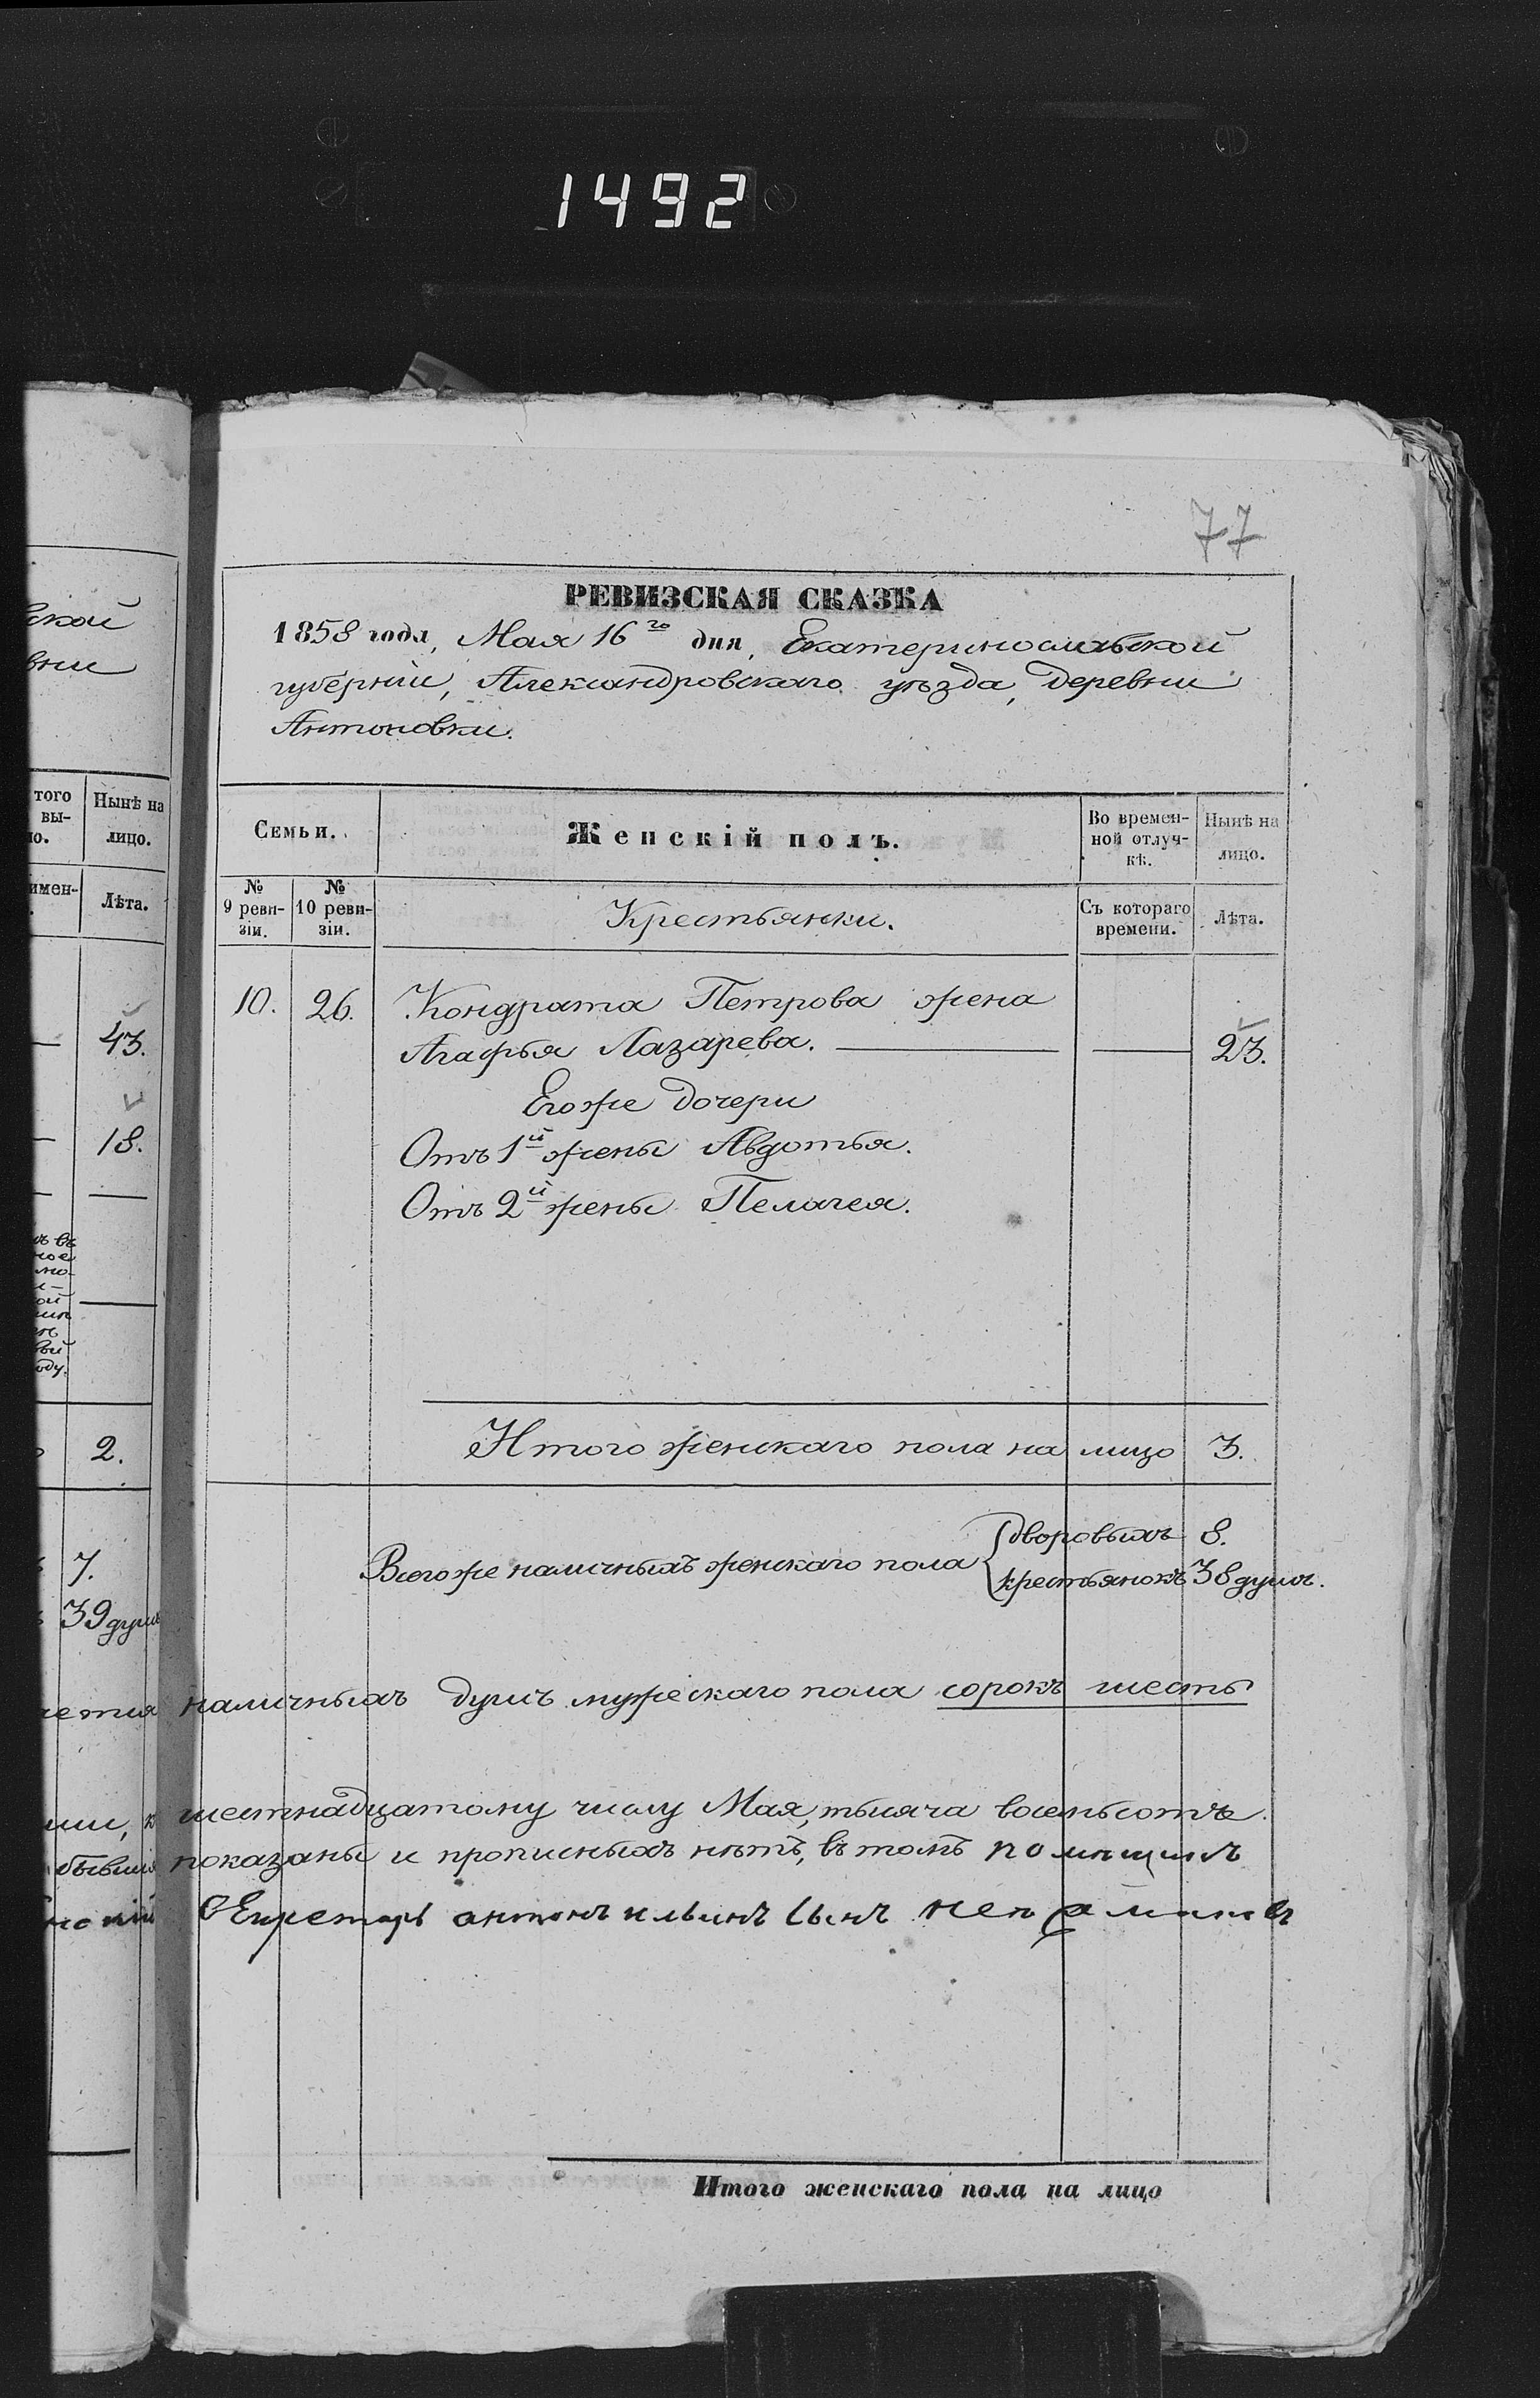 1492
77
РЕВИЗСКАЯ СКАЗКА
1858 года, Мая 16го дня, Екатеринославской
губерніи, Александровскаго уѣзда, деревни
Антоновки.
ской
вни
того
вы-
ло.
Нынѣ на
лицо.
имен-
Лѣта.
Семьи.
Женскій полъ.
Во времен-
ной отлуч-
кѣ.
Нынѣ на
лицо.
№
9 реви-
зіи.
№
10 реви-
зіи.
Крестьянки.
Съ котораго
времени.
Лѣта.
43.
18.
2.
7.
39 душъ
10. 26. Кондрата Петрова жена
Агафья Лазарева. 23.
Егоже дочери
Отъ 1й жены Авдотья.
Отъ 2й жены Пелагея.
Итого женскаго пола на лицо 3.
Всегоже наличныхъ женскаго пола
дворовыхъ 8.
крестьянокъ 38 душъ.
наличныхъ душъ мужескаго пола сорокъ шесть
шестнадцатому числу Мая, тысяча восемьсотъ
бывшіе показаны и прописныхъ нѣтъ, въ томъ помѣщикъ
СЕкретарь антонъ ильинъ сынъ
Итого женскаго пола на лицо